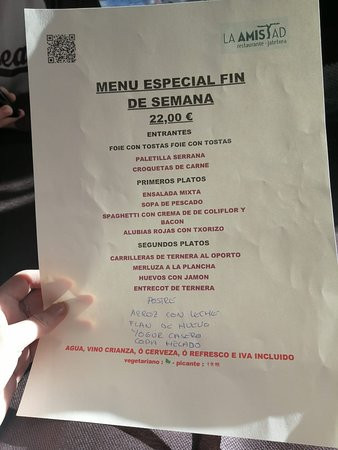 LA AMISTAD
restaurante · jatetxea
MENU ESPECIAL FIN
DE SEMANA
22,00 €
ENTRANTES
FOIE CON TOSTAS FOIE CON TOSTAS
PALETILLA SERRANA
CROQUETAS DE CARNE
PRIMEROS PLATOS
ENSALADA MIXTA
SOPA DE PESCADO
SPAGHETTI CON CREMA DE DE COLIFLOR Y
BACON
ALUBIAS ROJAS CON TXORIZO
SEGUNDOS PLATOS
CARRILLERAS DE TERNERA AL OPORTO
MERLUZA A LA PLANCHA
HUEVOS CON JAMON
ENTRECOT DE TERNERA
POSTRE
ARROZ CON LECHE
FLAN DE HUEVO
YOGUR CASERO
COPA HELADO
AGUA, VINO CRIANZA, Ó CERVEZA, Ó REFRESCO E IVA INCLUIDO
vegetariano : - picante :